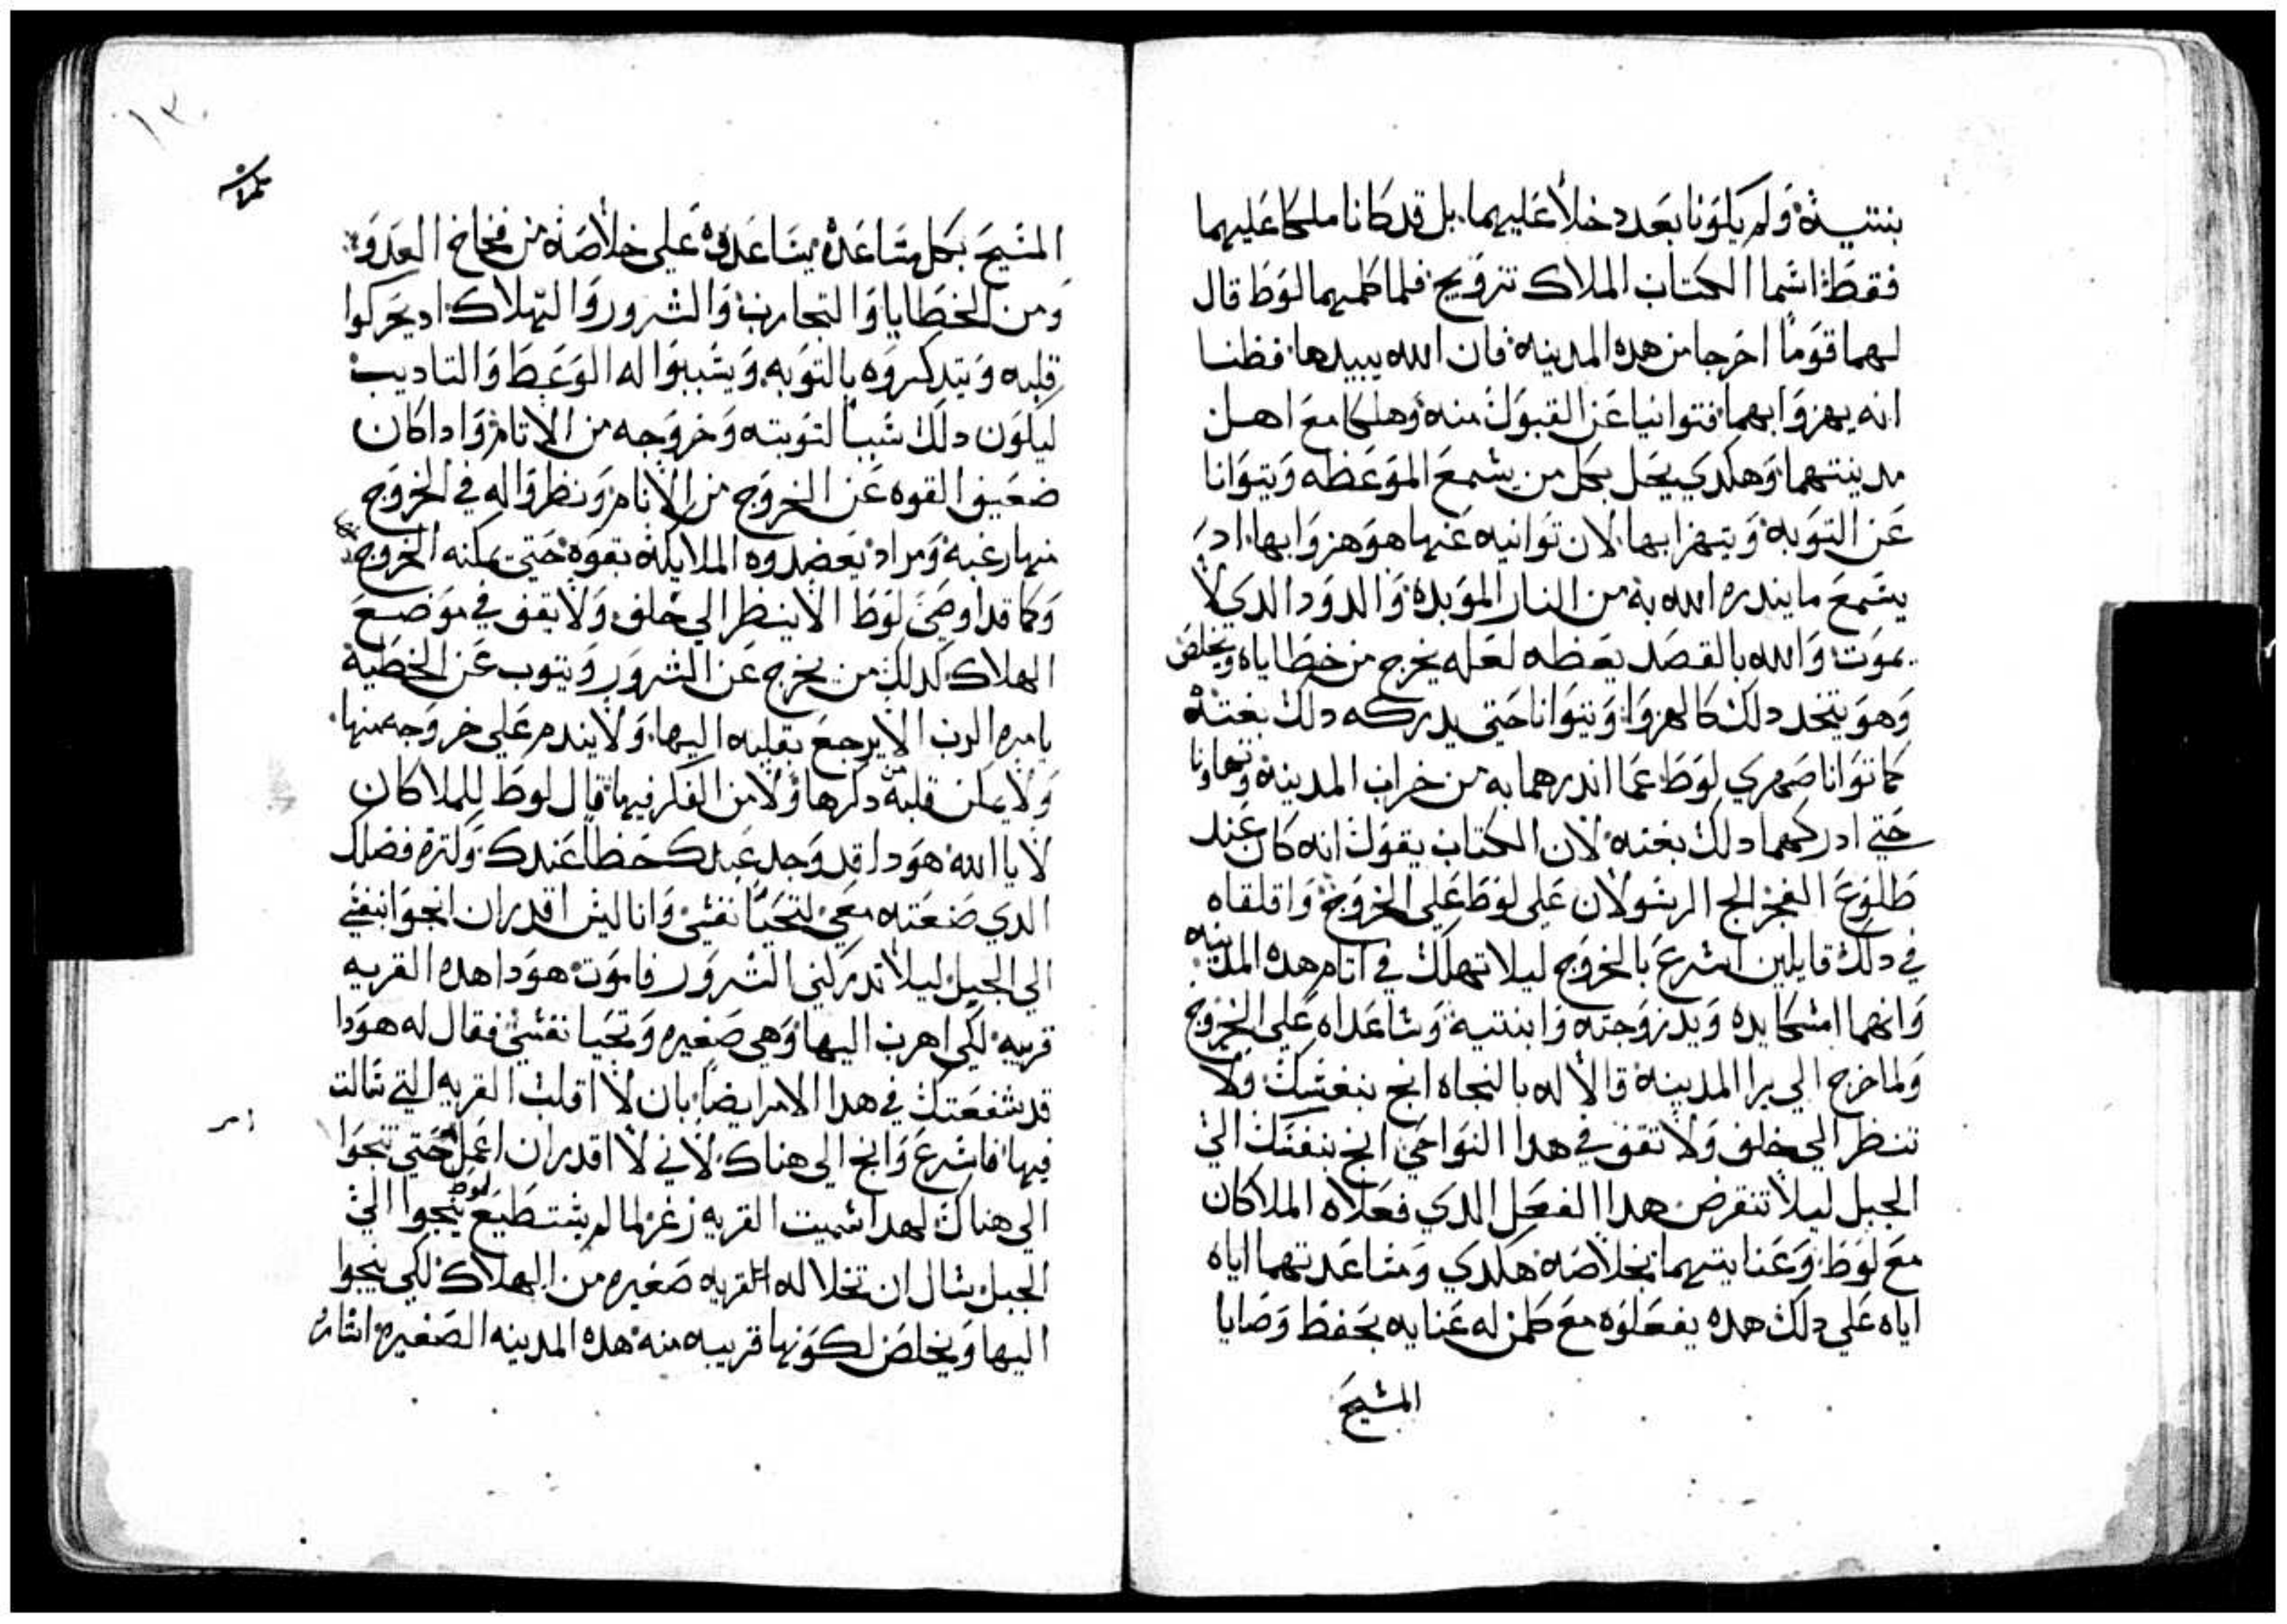 بنتيه ولم يكونا بعد دخلا عليهما. بل قد كانا ملكا عليهما
فقط اسما الكتاب الملاك تزويج فلما كلمهما لوط قال
لهما قوما اخرجا من هده المدينه فان الله يبيدها. فظنا
انه يهزوا بهما فتوانيا عن القبول منه وهلكا مع اهل
مدينتهما وهكدي يحل بكل من يسمع الموعظه ويتوانا
عن التوبه ويتهزا بها. لان توانيه عنها هو هزوا بها. اد
يسمع ما يندره الله به من النار الموبده والدود الدي لا
يموت والله بالقصد يعظه لعله يخرج من خطاياه ويخلص
وهو يتخد دلك كالهزوا ويتوانا حتي يدركه دلك بغته
كما توانا صهري لوط عما اندرهما به من خراب المدينه وتهاونا
حتي ادركهما دلك بغته لان الكتاب يقول انه كان عند
طلوع الفجر الج الرسولان علي لوط علي الخروج واقلقاه
في دلك قايلين اسرع بالخروج ليلا تهلك في اتام هده المدينه
وانهما امسكا يده ويد زوجته وابنتيه وساعداه علي الخروج
ولما خرج الي برا المدينه قالا له بالنجاه انج بنفسك ولا
تنظر الي خلف ولا تقف في هدا النواحي انج بنفسك الي
الجبل ليلا تنقرض هدا الفعل الدي فعلاه الملاكان
مع لوط وعنايتهما بخلاصه هكدي ومساعدتهما اياه
اياه علي دلك هده يفعلوه مع كلمن له عنايه بحفظ وصايا
المسيح
١٣٠
المسيح بكل مساعده يساعدوه علي خلاصه من فخاخ العدو
ومن الخطايا والتجارب والشرور والهلاك اد يحركوا
قلبه ويتدكروه بالتوبه ويسببوا له الوعظ والتاديب
ليكون دلك سببا لتوبته وخروجه من الاتام وادا كان
ضعيف القوه عن الخروج من الاتام ونظروا له في الخروج
منها رغبه ومراد يعضدوه الملايكه بقوه حتي يمكنه الخروج
وكما قد اوصي لوط الا ينظر الي خلف ولا يقف في موضع
الهلاك كدلك من يخرج عن الشرور ويتوب عن الخطيه
يامره الرب الا يرجع بقلبه اليها ولا يندم علي خروجه منها
ولا يمكن قلبه من دكرها ولا من الفكر فيها قال لوط للملاكان
لا يا الله هودا قد وجد عبدك حظا عندك ولتزه فضلك
الدي صنعته معي لتحيا نفسي وانا ليس اقدر ان انجوا بنفسي
الي الجبل ليلا تدركني الشرور فاموت هودا هده القريه
قريبه لكي اهرب اليها وهي صغيره وتحيا نفسي فقال له هودا
قد شفعتك في هدا الامر ايضا بان لا اقلب القريه التي سالت
فيها فاسرع وانج الي هناك لاني لا اقدر ان اعمل حتي تنجوا
الي هناك لهدا سميت القريه زغر لما لم يستطيع لوط ينجوا الي
الجبل سال ان تخلا له القريه صغيره من الهلاك لكي ينجوا
اليها ويخلص لكونها قريبه منه هده المدينه الصغيره اشاره